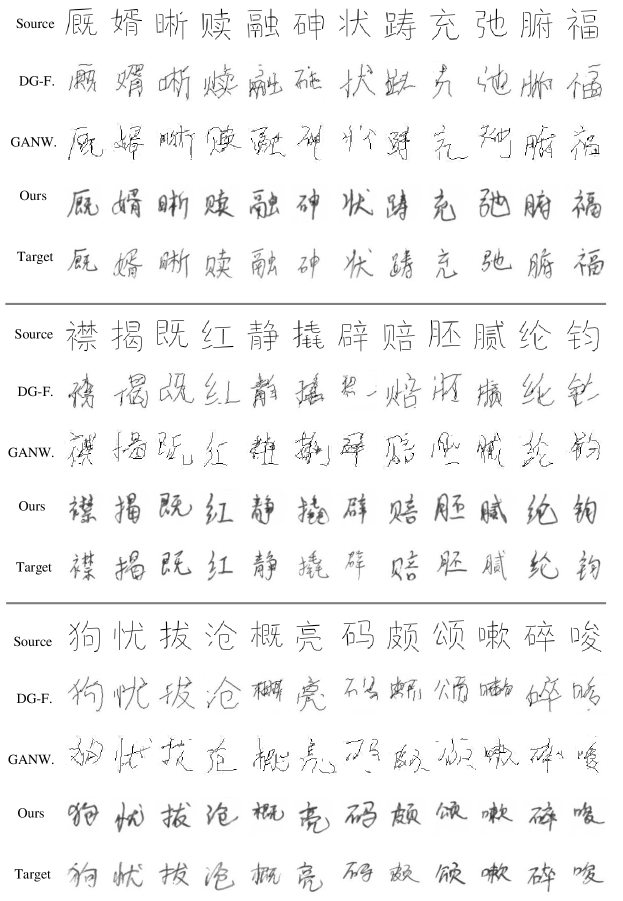 Source 厩 婿 晰 赎 融 砷 状 踌 充 弛 腑 福
DG-F. 婿 晰 赎 福
GANW. 厩 婿 晰 赎 融 砷 踌 充 腑 福
Ours 厩 婿 晰 赎 融 砷 状 踌 充 弛 腑 福
Target 厩 婿 晰 赎 融 砷 状 踌 充 弛 腑 福
Source 襟 揭 既 红 静 撬 辟 赔 胚 腻 纶 钧
DG-F. 既 红 静 赔 纶
GANW. 襟 揭 既 红 静 辟 赔 腻 纶 钧
Ours 襟 揭 既 红 静 撬 辟 赔 胚 腻 纶 钧
Target 襟 揭 既 红 静 撬 辟 赔 胚 腻 纶 钧
Source 狗 忧 拔 沧 概 亮 码 颇 颂 嗽 碎 唆
DG-F. 狗 忧 拔 沧 亮 碎 唆
GANW. 狗 忧 拔 沧 概 亮 码 嗽 碎 唆
Ours 狗 忧 拔 沧 概 亮 码 颇 颂 嗽 碎 唆
Target 狗 忧 拔 沧 概 亮 码 颇 颂 嗽 碎 唆